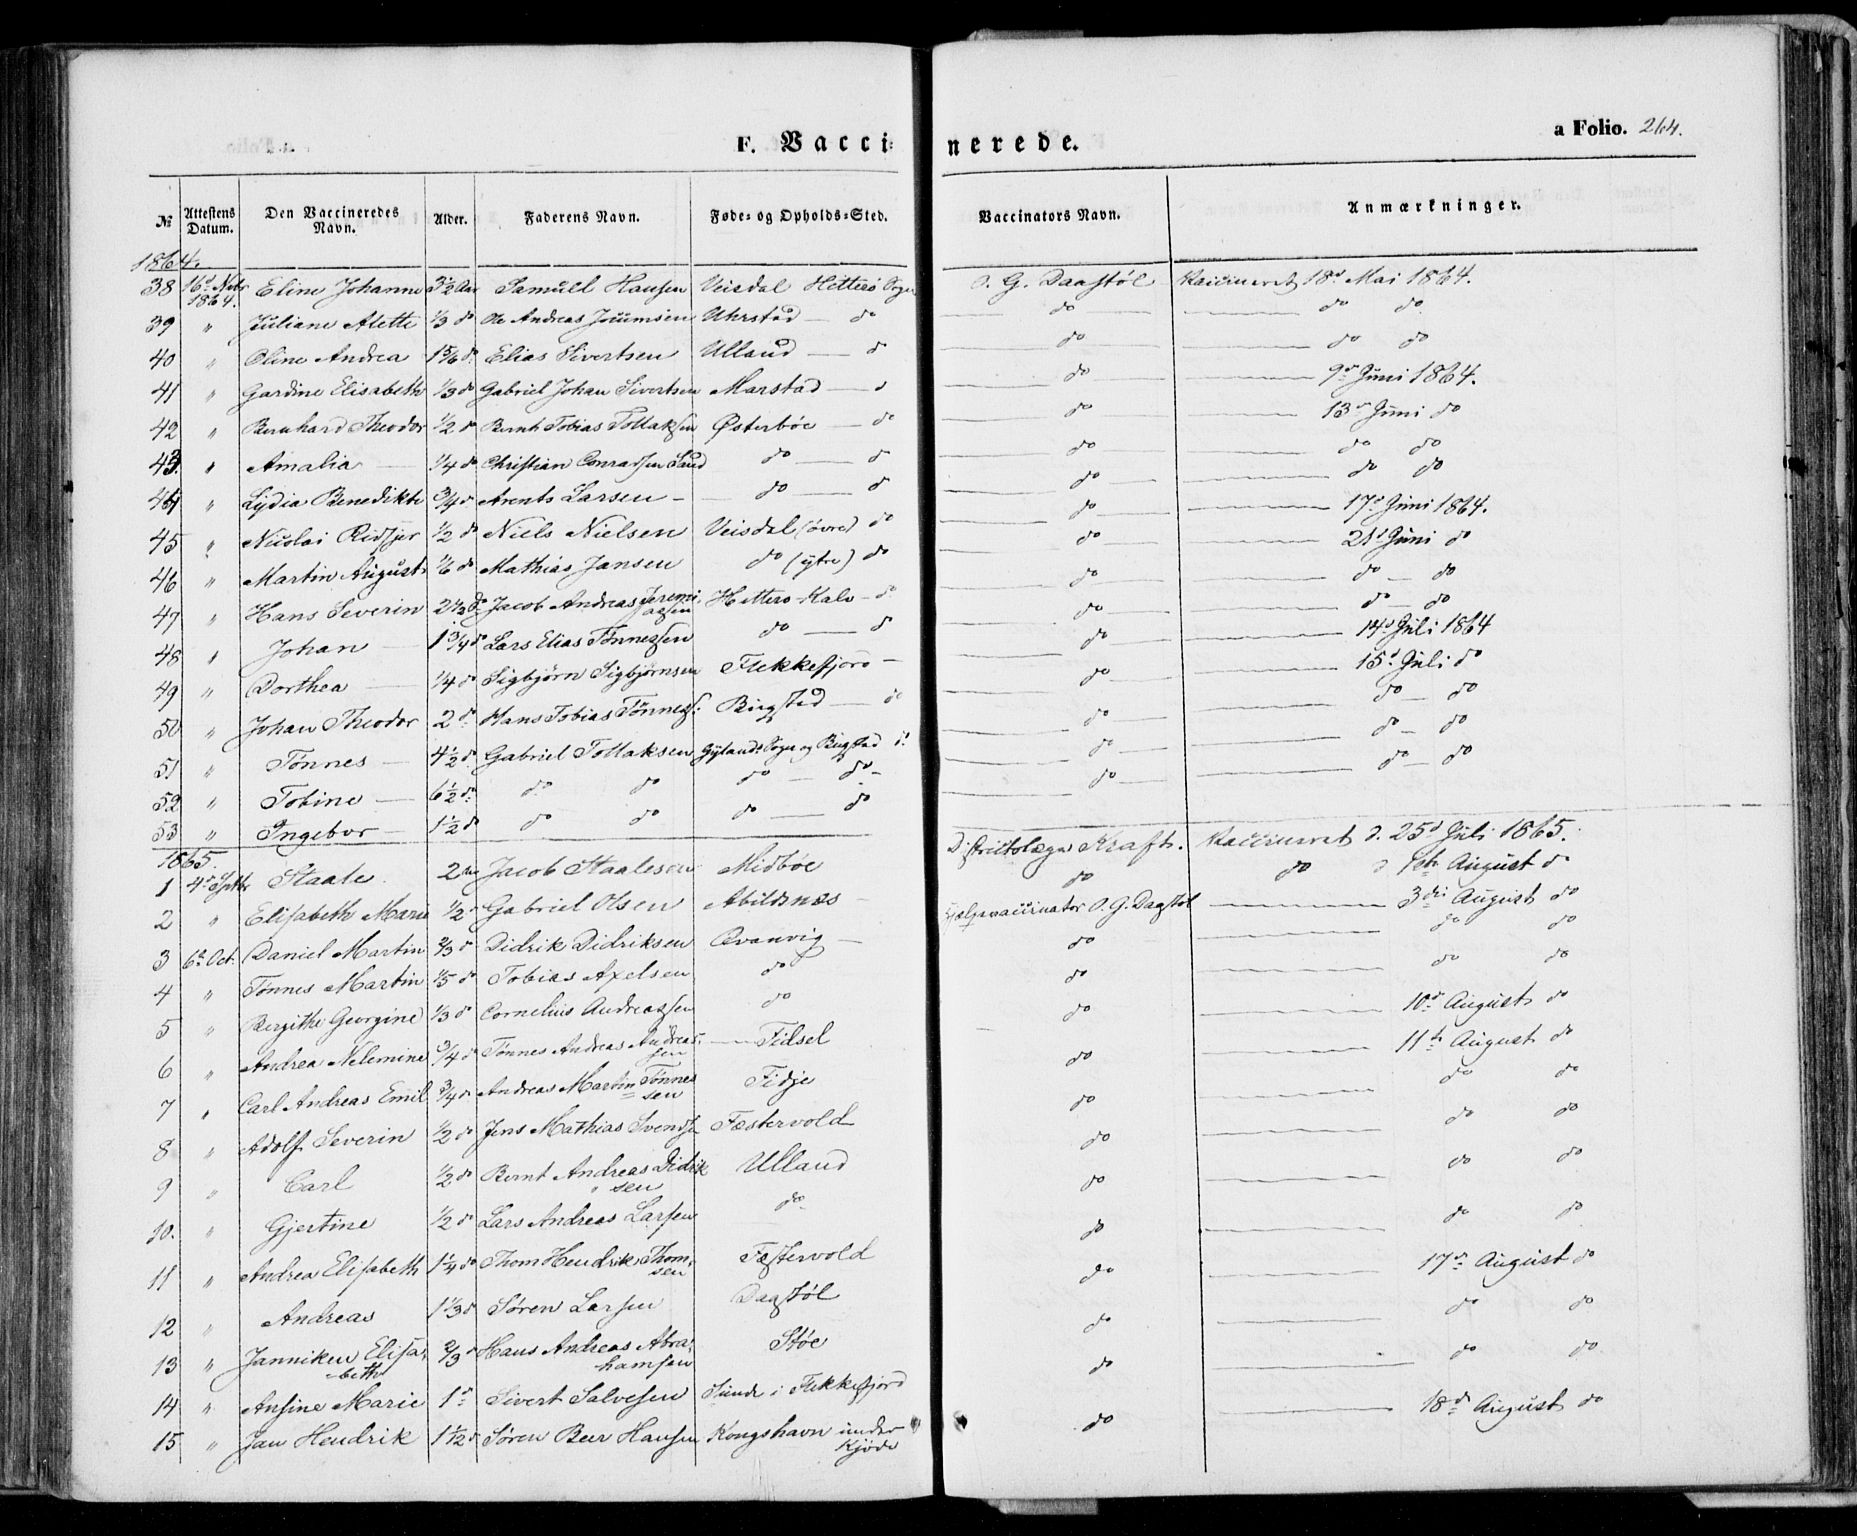 F. Vaccinerede.
a Folio. 264.
№ | Attestens Datum. | Den Vaccineredes Navn. | Alder. | Faderens Navn. | Føde- og Opholds-Sted. | Vaccinators Navn. | Anmærkninger.
1864.
38 | 16d Nvbr 1864. | Eline Johanne | 3½ Aar | Samuel Hansen | Veisdal Hitterø Sogn | O. G. Daastøl | Vaccineret 18d Mai 1864.
39 | " | Juliane Alette | 1/3 do | Ole Andreas Joumsen | Uhrstad — do | do | do do
40 | " | Oline Andrea | 1 5/6 d. | Elias Sivertsen | Ulland — d | do | do do
41 | " | Gardine Elisabeth | 1/3 do | Gabriel Johan Sivertsen | Marstad — d | do | 9de Juni 1864.
42 | " | Bernhard Theodor | 1/2 do | Bernt Tobias Tollaksen | Østerbøe — do | do | 13de Juni do
43 | " | Amalia | 1/4 do | Christian Conradsen Lund | do — d | do | do do
44 | " | Lydia Benedikte | 3/4 d | Arents Larsen | do — d | do | do do
45 | " | Nicolai Reisjer | 1/2 do | Niels Nielsen | Veisdal (øvre) do | do | 17d Juni 1864.
46 | " | Martin August | 1/6 do | Mathias Jansen | do (ytre) do | do | 21d Juni do
47 | " | Hans Severin | 2 1/3 do | Jacob Andreas Jeremiassen | Hitterø-Kalv - do | do | do — do
48 | " | Johan | 1 3/4 do | Lars Elias Tønnessen | do — d | do | do — do
49 | " | Dorthea | 1/4 do | Sigbjørn Sigbjørnsen | Flekkefjord — | do | 14d Juli 1864
50 | " | Johan Theodor | 2 do | Hans Tobias Tønness: | Birgsted — do | do | 15d Juli do
51 | " | Tønnes | 4½ d. | Gabriel Tollaksen | Gylands Sogn og Birgstad d. | do | do — do
52 | " | Tobine | 6½ do | do do | do — do | do | do — do
53 | " | Ingebor | 1½ do | do do | do — do | do | do — do
1865.
1 | 4d Sptbr | Staale | 2 Aar | Jacob Staalesen | Midbøe | Districtslæge Kraft. | Vaccineret d. 25d Juli 1865.
2 | " | Elisabeth Marie | 1/2 " | Gabriel Olsen | Abildsnæs | do | do d 1ste August do
3 | 6te Oct. | Daniel Martin | 2/3 d | Didrik Didriksen | Qvanvig — | Hjælpevaccinator O. G. Dagstøl | 3die August do
4 | " | Tønnes Martin | 1/5 do | Tobias Axelsen | do | do | do do
5 | " | Bergithe Georgine | 1/3 do | Cornelius Andreassen | do | do | do do
6 | " | Andrea Nelemine | 3/4 do | Tønnes Andreas Andreassen | Fidsel | do | 10de August do
7 | " | Carl Andreas Emil | 3/4 do | Andreas Martin Tønnessen | Fidje | do | 11te August do
8 | " | Adolf Severin | 1/2 do | Jens Mathias Svends | Fæstervold | do | do do
9 | " | Carl | 1/2 do | Bernt Andreas Didriksen | Ulland | do | do do
10. | " | Gjertine | 1/2 do | Lars Andreas Larsen | do | do | do do
11 | " | Andrea Elisabeth | 1¼ do | Thom Hendrik Thomsen | Fæstervold | do | do do
12 | " | Andreas | 1 1/3 d | Søren Larsen | Dagstøl | do | 17de August do
13 | " | Janniken Elisabeth | 2/3 do | Hans Andreas Abrahamsen | Støe | do | do do
14 | " | Ansine Marie | 1 d | Sivert Salvesen | Sunde i Flekkefjord | do | do do
15 | " | Jan Hendrik | 1½ do | Søren Beer Hansen | Kongshavn under Kjøde | do | 18de August do